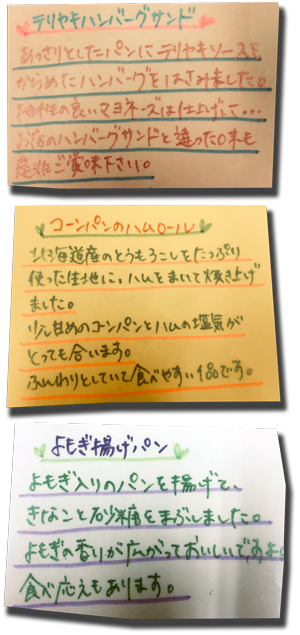 テリヤキハンバーグサンド
あっさりとしたパンにテリヤキソースを
からめたハンバーグをはさみました。
相性の良いマヨネーズは仕上げして…
お店のハンバーグサンドと違った味も
是非ご賞味下さい。
コーンパンのハムロール
北海道産のとうもろこしをたっぷり
使った生地に、ハムをまいて焼き上げ
ました。
少し甘めのコーンパンとハムの塩気が
とっても合います。
ふんわりとしていて食べやすい1品です。
よもぎ揚げパン
よもぎ入りのパンを揚げて、
きなこと砂糖をまぶしました。
よもぎの香りが広がっておいしいですよ。
食べ応えもあります。